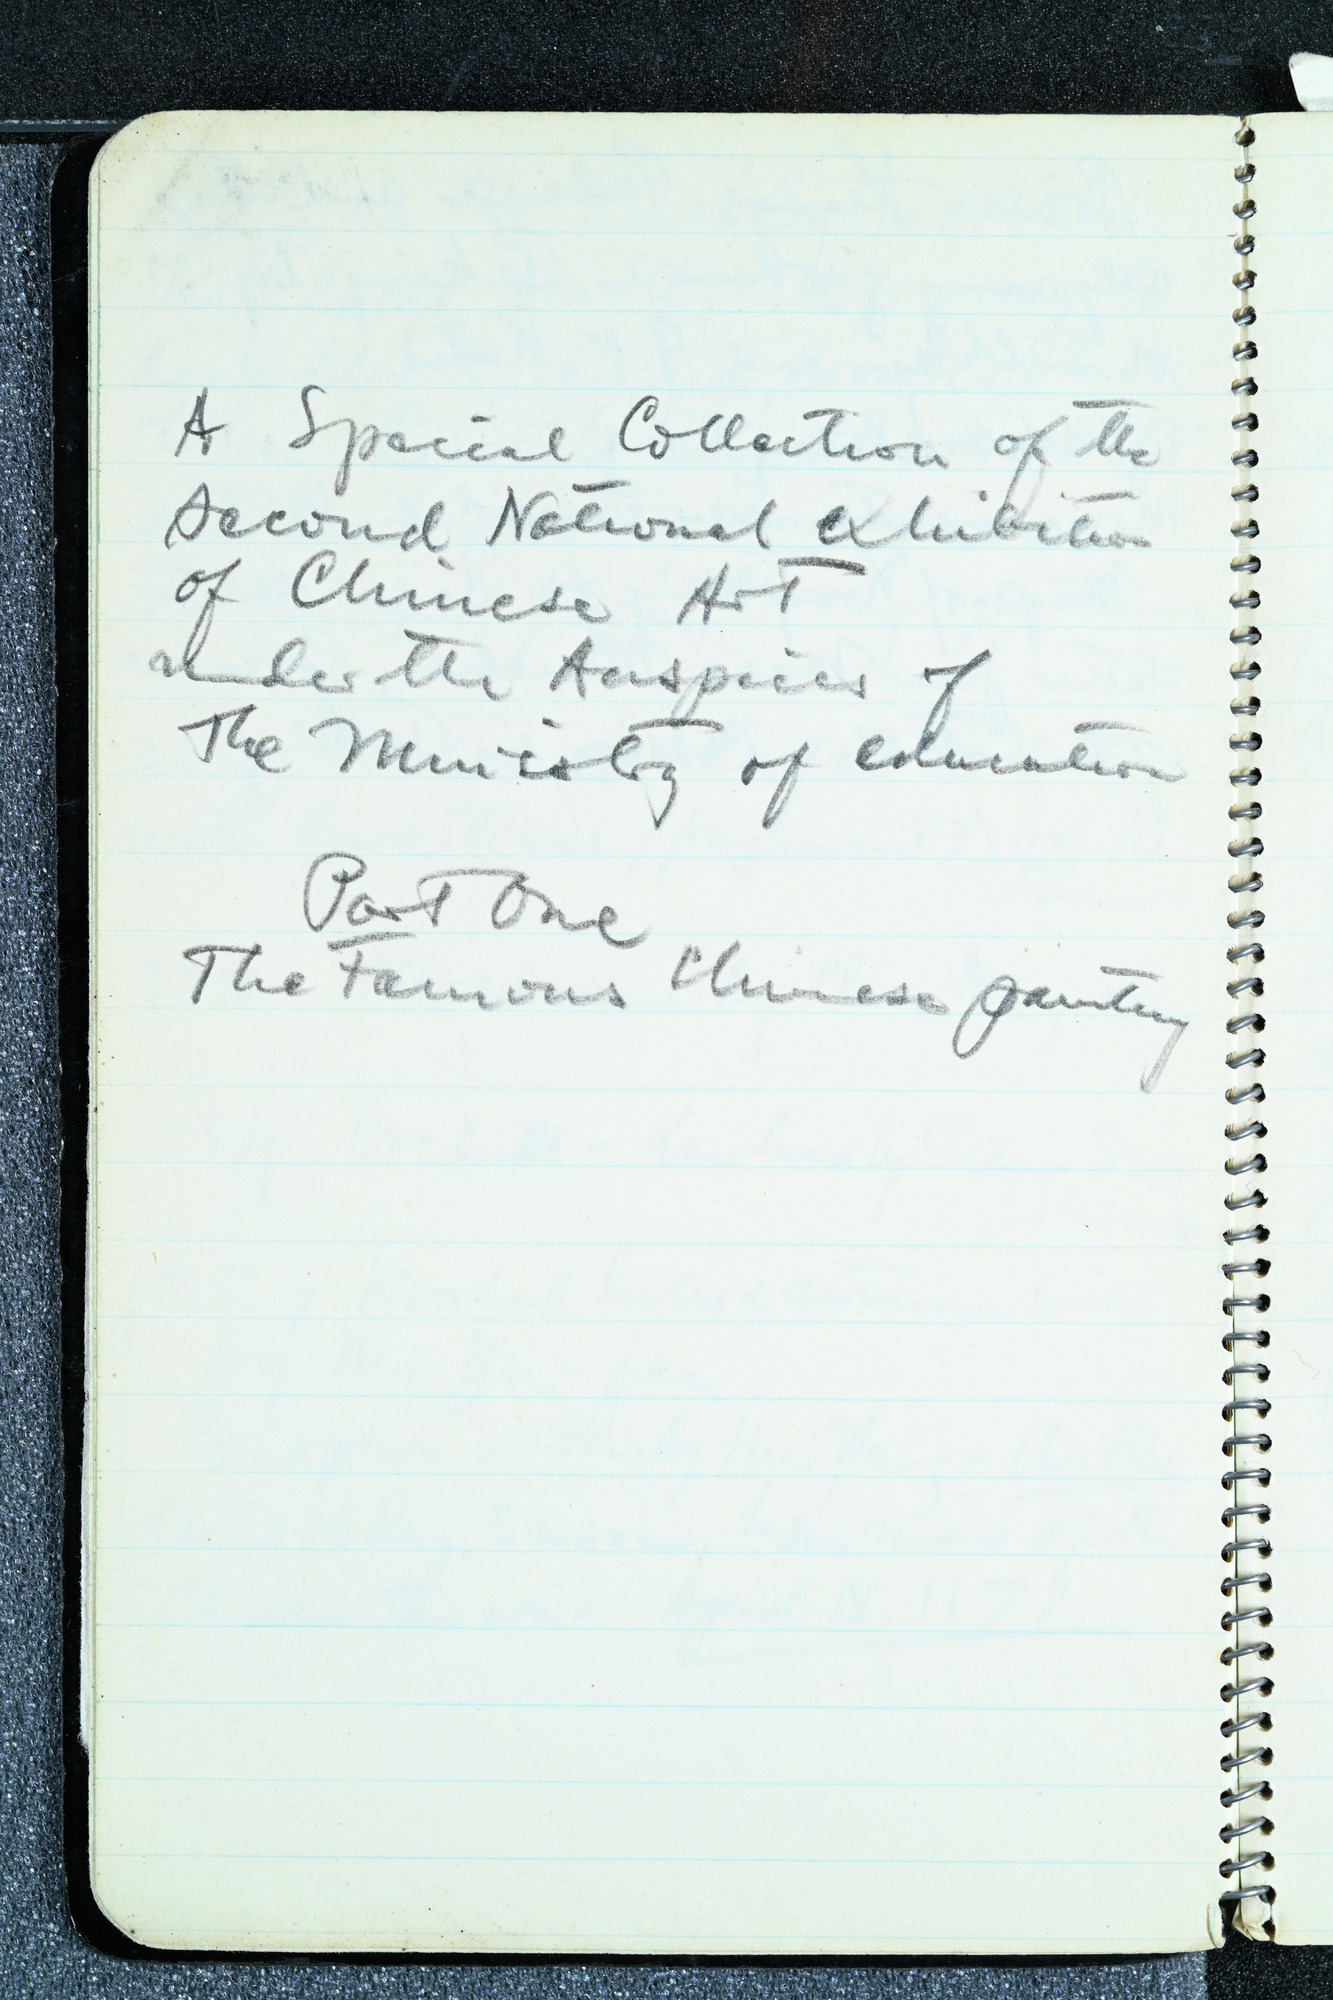 A Special Collection of the
second National exhibition
of Chinese Art
under the Auspices of
The Ministry of education
Part One
The Famous Chinese painting